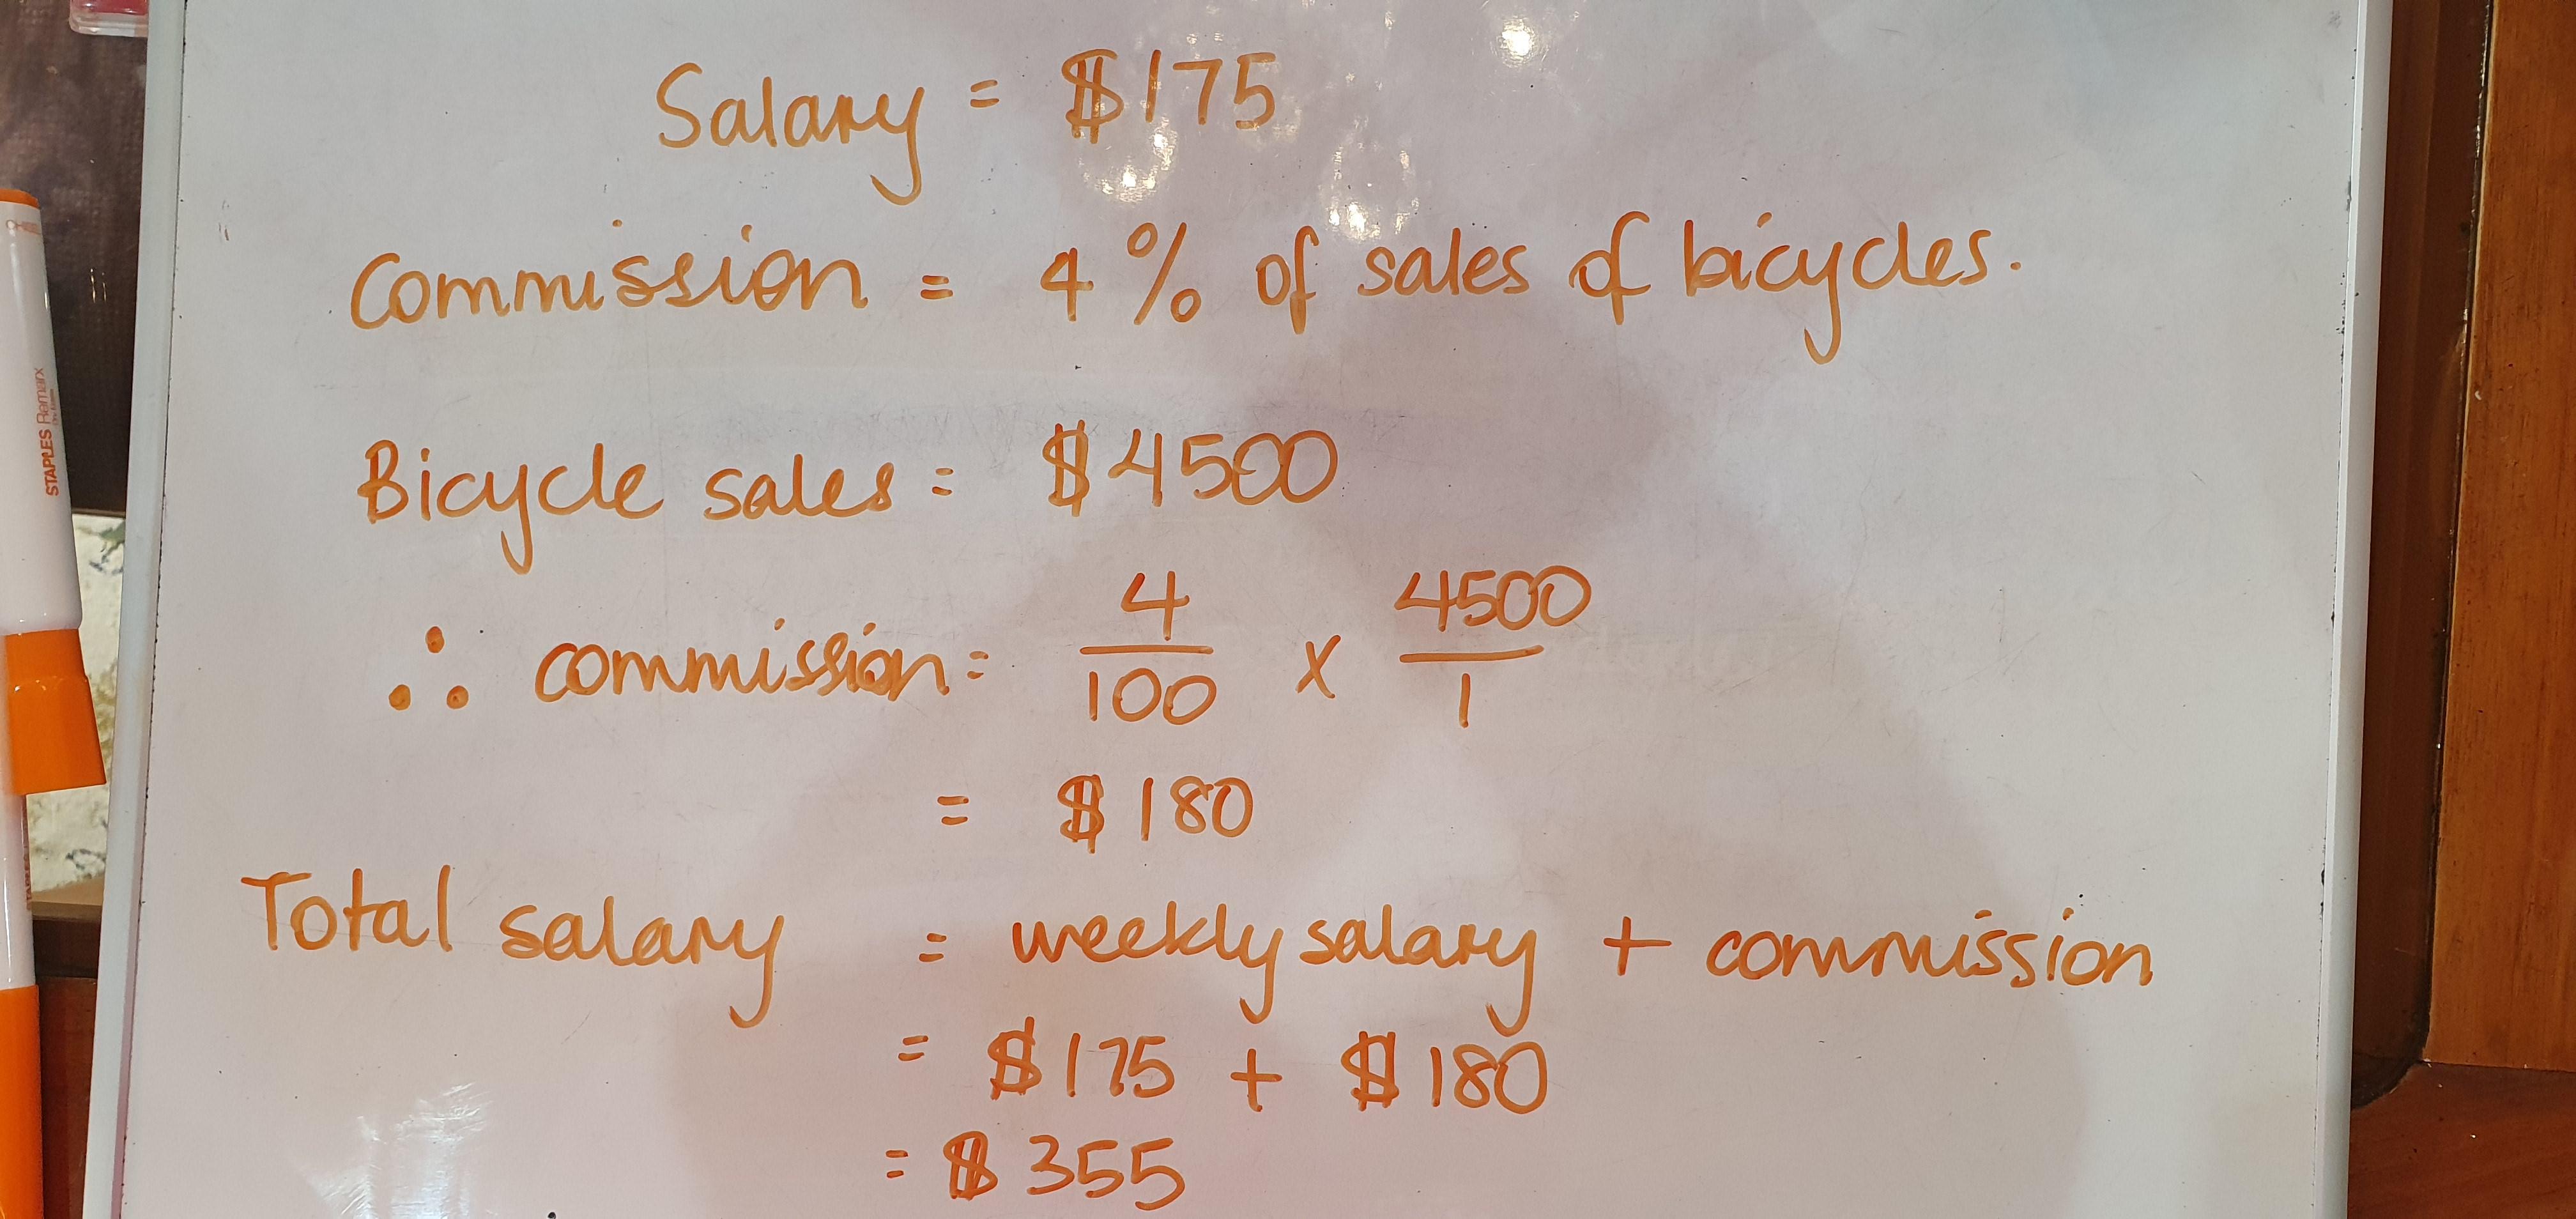 Salary = $175
Commission = 4% of sales of bicycles.
Bicycle sales = $4500
∴ commission = 4/100 x 4500/1
= $180
Total salary = weekly salary + commission
= $175 + $180
= $355
STAPLES Remarx